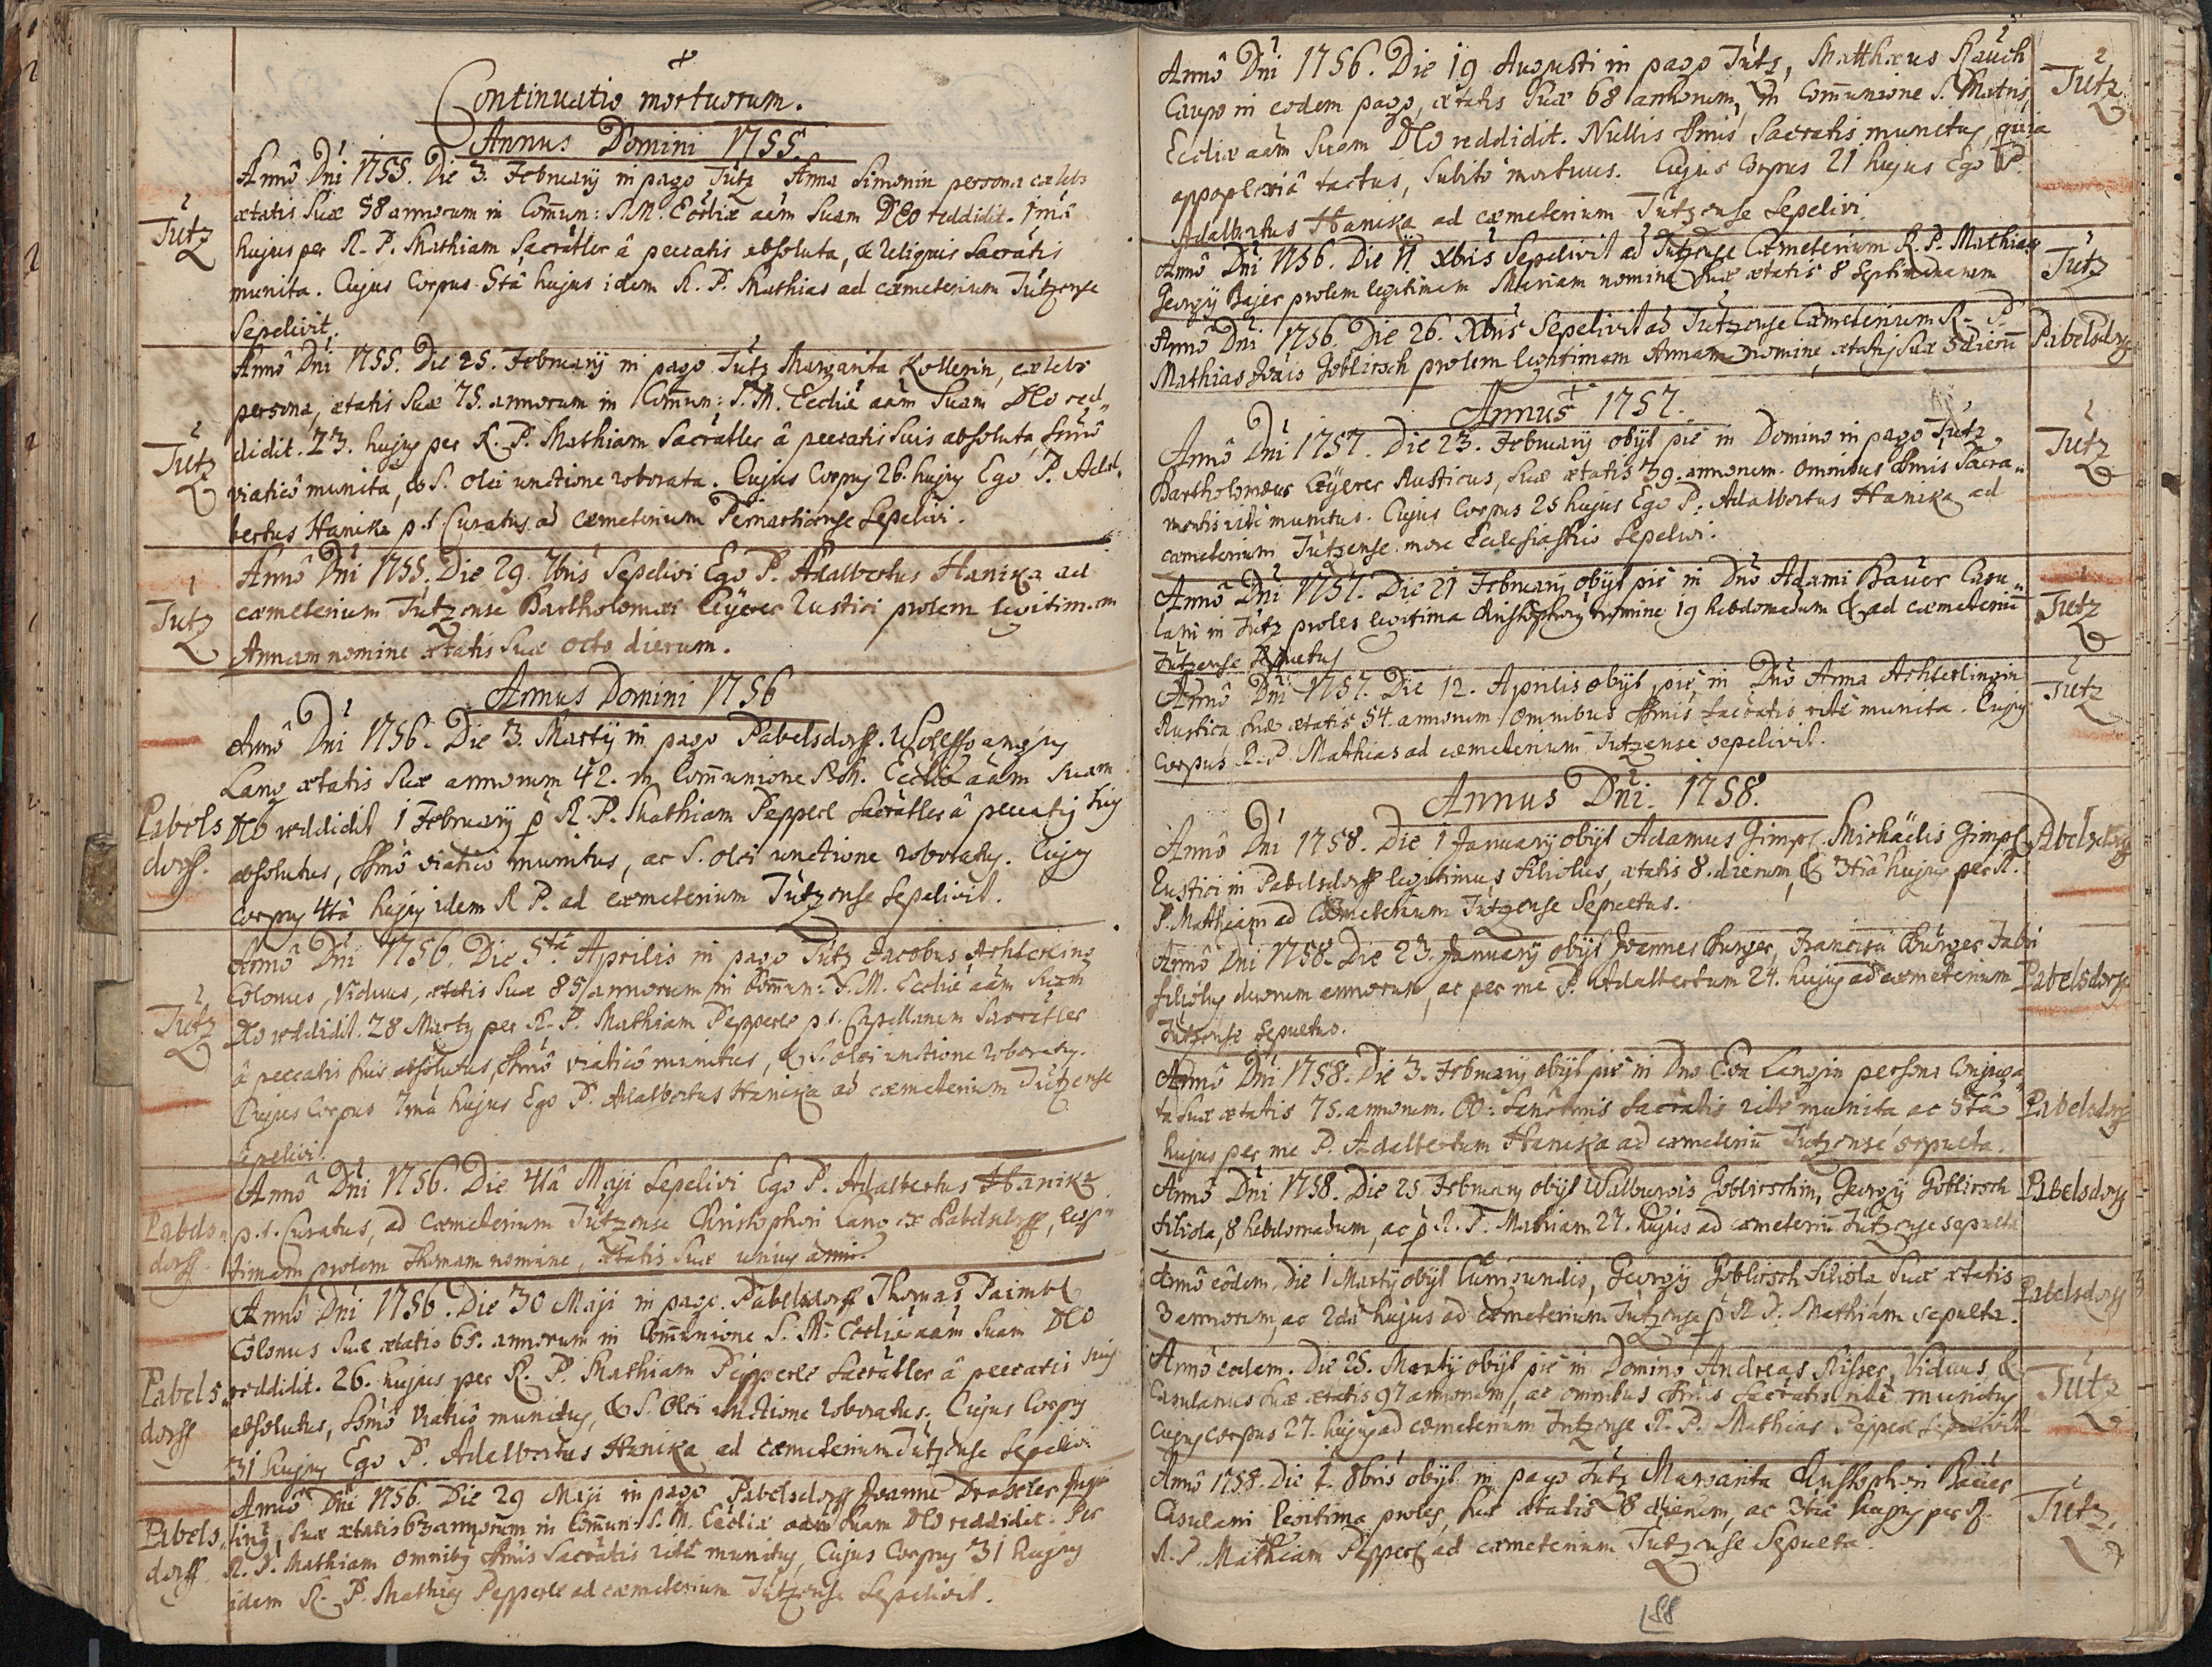 Continuatio mortuorum.
Annus Domini 1755.
Annô Dni 1755. Die 3. Februarij in pago Tutz Anna Simonin persona cælebs
ætatis suæ 58 annorum in Commun: S. M. Eccliæ aám suam DEo reddidit.
Tutz
hujus per R. P. Mathiam Sacrâtler â peccatis absoluta, & reliquis Sacratis
munita. Cujus Corpus 5tâ hujus idem R. P. Mathias ad cæmeterium Tutzense
Sepelivit.
Annô Dni 1755. Die 25. Februarij in pago Tutz Margarita Kollerin, cælebs
persona, ætatis suæ 75. annorum in Commun: S. M. Eccliæ aám suam DEo red„
Tutz
didit. 23. hujus per R. P. Mathiam Sacrâtler â peccatis suis absoluta, ssmô
viaticô munita, & S. olei unctione roborata. Cujus Corpus 26. hujus Ego P. Adal„
bertus Hanika p. t. Curatus ad cæmeterium Pernarticense Sepelivi.
Annô Dni 1755. Die 29. 7bris Sepelivi Ego P. Adalbertus Hanika ad
Tutz
cæmeterium Tutzense Bartholomæi Eÿerer Rustici prolem legitimam
Annam nomine ætatis suæ octo dierum.
Annus Domini 1756
Annô Dni 1756. Die 3. Martij in pago Pabelsdorff. Wolffgangus
Lang ætatis suæ annorum 42. in Communione S. M. Eccliæ aám suam
Pabels
dorff.
DEo reddidit 1 Februarij p R. P. Mathiam Pepperl Sacrâtler â peccatis suis
absolutus, ssmô viaticô munitus, ac S. olei unctione roboratus. Cujus
Corpus 4tâ hujus idem R P. ad cæmeterium Tutzense Sepelivit.
Annô Dni 1756. Die 5tâ Aprilis in pago Tutz Jacobus Achterling
Colonus, Viduus, ætatis suæ 85 annorum in Commun: S. M. Eccliæ aám suam
Tutz
DEo reddidit. 28 Martij per R. P. Mathiam Pepperle p. t. Capellanum Sacrâtler
â peccatis suis absolutus, ssmô viaticô munitus, & S. olei unctione roboratus.
Cujus Corpus 7mâ hujus Ego P. Adalbertus Hanika ad cæmeterium Tutzense
Sepelivi.
Annô Dni 1756. Die 4tâ Maji Sepelivi Ego P. Adalbertus Hanika
Pabels„
dorff.
p. t. Curatus, ad Cæmeterium Tutzense Christophori Lang ex Pabelsdorff, legi„
timam prolem Thomam nomine, ætatis suæ unius anni.
Annô Dni 1756. Die 30 Maji in pago Pabelsdorff Thomas Paimbl
Colonus suæ ætatis 65. annorum in Communione S. M. Eccliæ aám suam DEo
Pabels„
dorff
reddidit. 26. hujus per R. P. Mathiam Pepperle Sacrâtler â peccatis suis
absolutus, ssmô viaticô munitus, & S. Olei unctione roboratus. Cujus Corpus
31 hujus Ego P. Adalbertus Hanika ad cæmeterium Tutzense Sepelivi
Annô Dni 1756. Die 29 Maji in pago Pabelsdorff Joannes Draxler
Pabels„
dorff.
suæ ætatis 63 annorum in Commun: S. M. Eccliæ aám suam DEo reddidit. Per
R. P. Mathiam omnibus ssmis Sacratis ritê munitus, Cujus Corpus 31 hujus
idem R. P. Mathias Pepperle ad cæmeterium Tutzense Sepelivit.
Annô Dni 1756. Die 19 Augusti in pago Tutz, Matthæus Rauch
Tutz
Caupo in eodem pago, ætatis suæ 68 annorum, in Communione S. Matris
Eccliæ aám suam DEo reddidit. Nullis ssmis Sacratis munitus, quia
appoplexiâ tactus, subitô mortuus. Cujus Corpus 21 hujus Ego P.
Adalbertus Hanika ad cæmeterium Tutzense Sepelivi.
Annô Dni 1756. Die 11. Xbris Sepelivit ad Tutzense Cæmeterium R. P. Mathias
Tutz
Georgij Bajer prolem legitimam Mariam nomine suæ ætatis 8 septimanarum
Annô Dni 1756. Die 26. Xbris Sepelivit ad Tutzense Cæmeterium R. P.
Pabelsdorf
Mathias Joáis Goblirsch prolem legitimam Annam nomine, ætatis suæ 5 dierum
Annus 1757.
Annô Dni 1757. Die 23. Februarij obijt piê in Domino in pago Tutz
Tutz
Bartholomæus Eÿerer Rusticus, suæ ætatis 39. annorum. Omnibus ssmis Sacra„
mentis ritê munitus. Cujus Corpus 25 hujus Ego P. Adalbertus Hanika ad
cæmeterium Tutzense more Ecclesiastico Sepelivi.
Annô Dni 1757. Die 21 Februarij obijt piê in Dnô Adami Bauer Casu„
Tutz
lani in Tutz proles legitima Christophorus nomine 19 hebdomadum & ad cæmeteriū
Tutzense sepultus
Annô Dni 1757. Die 12. Aprilis obijt piê in Dnô Anna Achterlingin
Tutz
Rustica suæ ætatis 54. annorum Omnibus ssmis sacratis ritê munita. Cujus
Corpus R. P. Mathias ad cæmeterium Tutzense sepelivit.
Annus Dni. 1758.
Annô Dni 1758. Die 1 Januarij obijt Adamus Gimpl. Michaëlis Gimpl
Pabelsdorff
Rustici in Pabelsdorff legitimus filiolus, ætatis 8. dierum, & 3tiâ hujus per R.
P. Mathiam ad Cæmeterium Tutzense Sepultus.
Annô Dni 1758. Die 23. Januarij obijt Joannes Burger, Francisci Burger Fabri
Pabelsdorff
filiolus duorum annorum, ac per me P. Adalbertum 24. hujus ad cæmeterium
Tutzense sepultus.
Annô Dni 1758. Die 3. Februarij obijt piê in Dno Eva Langin persona Conjuga„
Pabelsdorff
ta suæ ætatis 75. annorum. OO: Sanctmis Sacratis ritê munita ac 5tâ
hujus per me P. Adalbertum Hanika ad cæmeteriū Tutzense sepulta.
Annô Dni 1758. Die 25 Februarij obijt Walburgis Goblirschin, Georgij Goblirsch
Pabelsdorff
filiola, 8 hebdomadum, ac p R. P. Mathiam 27. hujus ad cæmeteriū Tutzense sepulta
Annô eôdem. Die 1 Martij obijt Cunigundis, Georgij Goblirsch filiola suæ ætatis
Pabelsdorff
3 annorum, ac 2dâ hujus ad cæmeterium Tutzense p R. P. Mathiam sepulta.
Annô eodem. Die 25. Martij obijt piê in Domino Andreas Risser, Viduus, &
Tutz
Casulanus suæ ætatis 97 annorum, ac omnibus ssmis sacratis ritê munitus
Cujus corpus 27. hujus ad cæmeterium Tutzense R. P. Mathias Pepperl Sepelivit
Annô 1758. Die 1. 8bris obijt in pago Tutz Margarita Christophori Bauer
Tutz.
Casulani legitima proles, suæ ætatis 28 dierum, ac 3tiâ hujus per
R. P. Mathiam Pepperl ad cæmeterium Tutzense Sepulta.
188